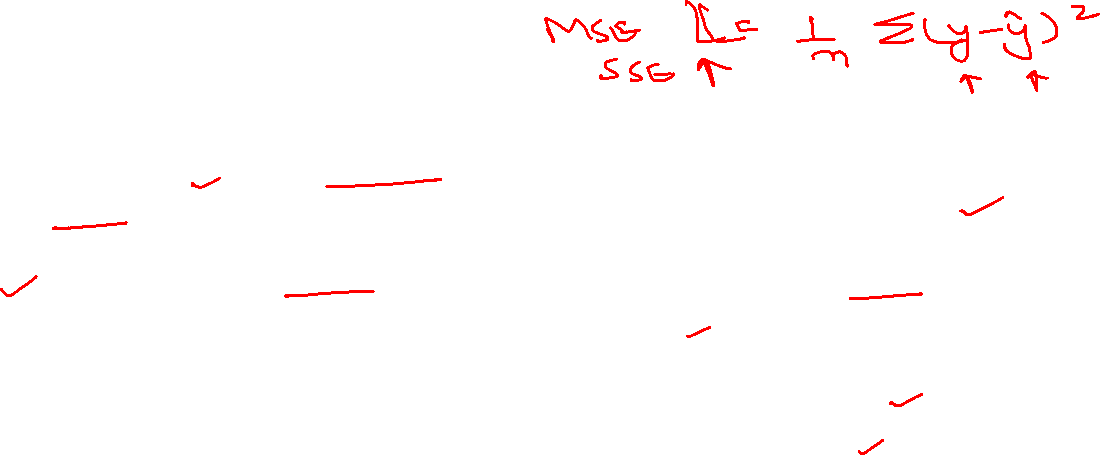 MSE L = 1/m Σ(y-ŷ)²
SSE